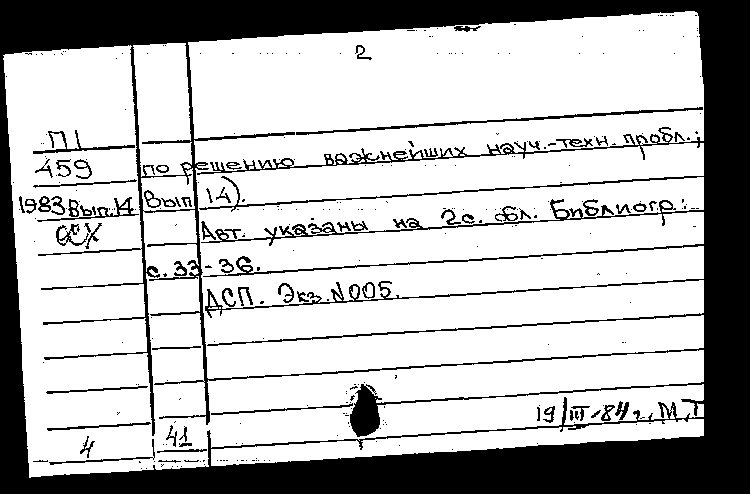 2
П1
459
1983 Вып.14
ОСХ
по решению важнейших науч.-техн. пробл.;
Вып 14).
Авт. указаны на 2с. обл. Библиогр.:
с. 33-36.
ДСП. Экз.N005.
19/III-84г., М,Т
4
41